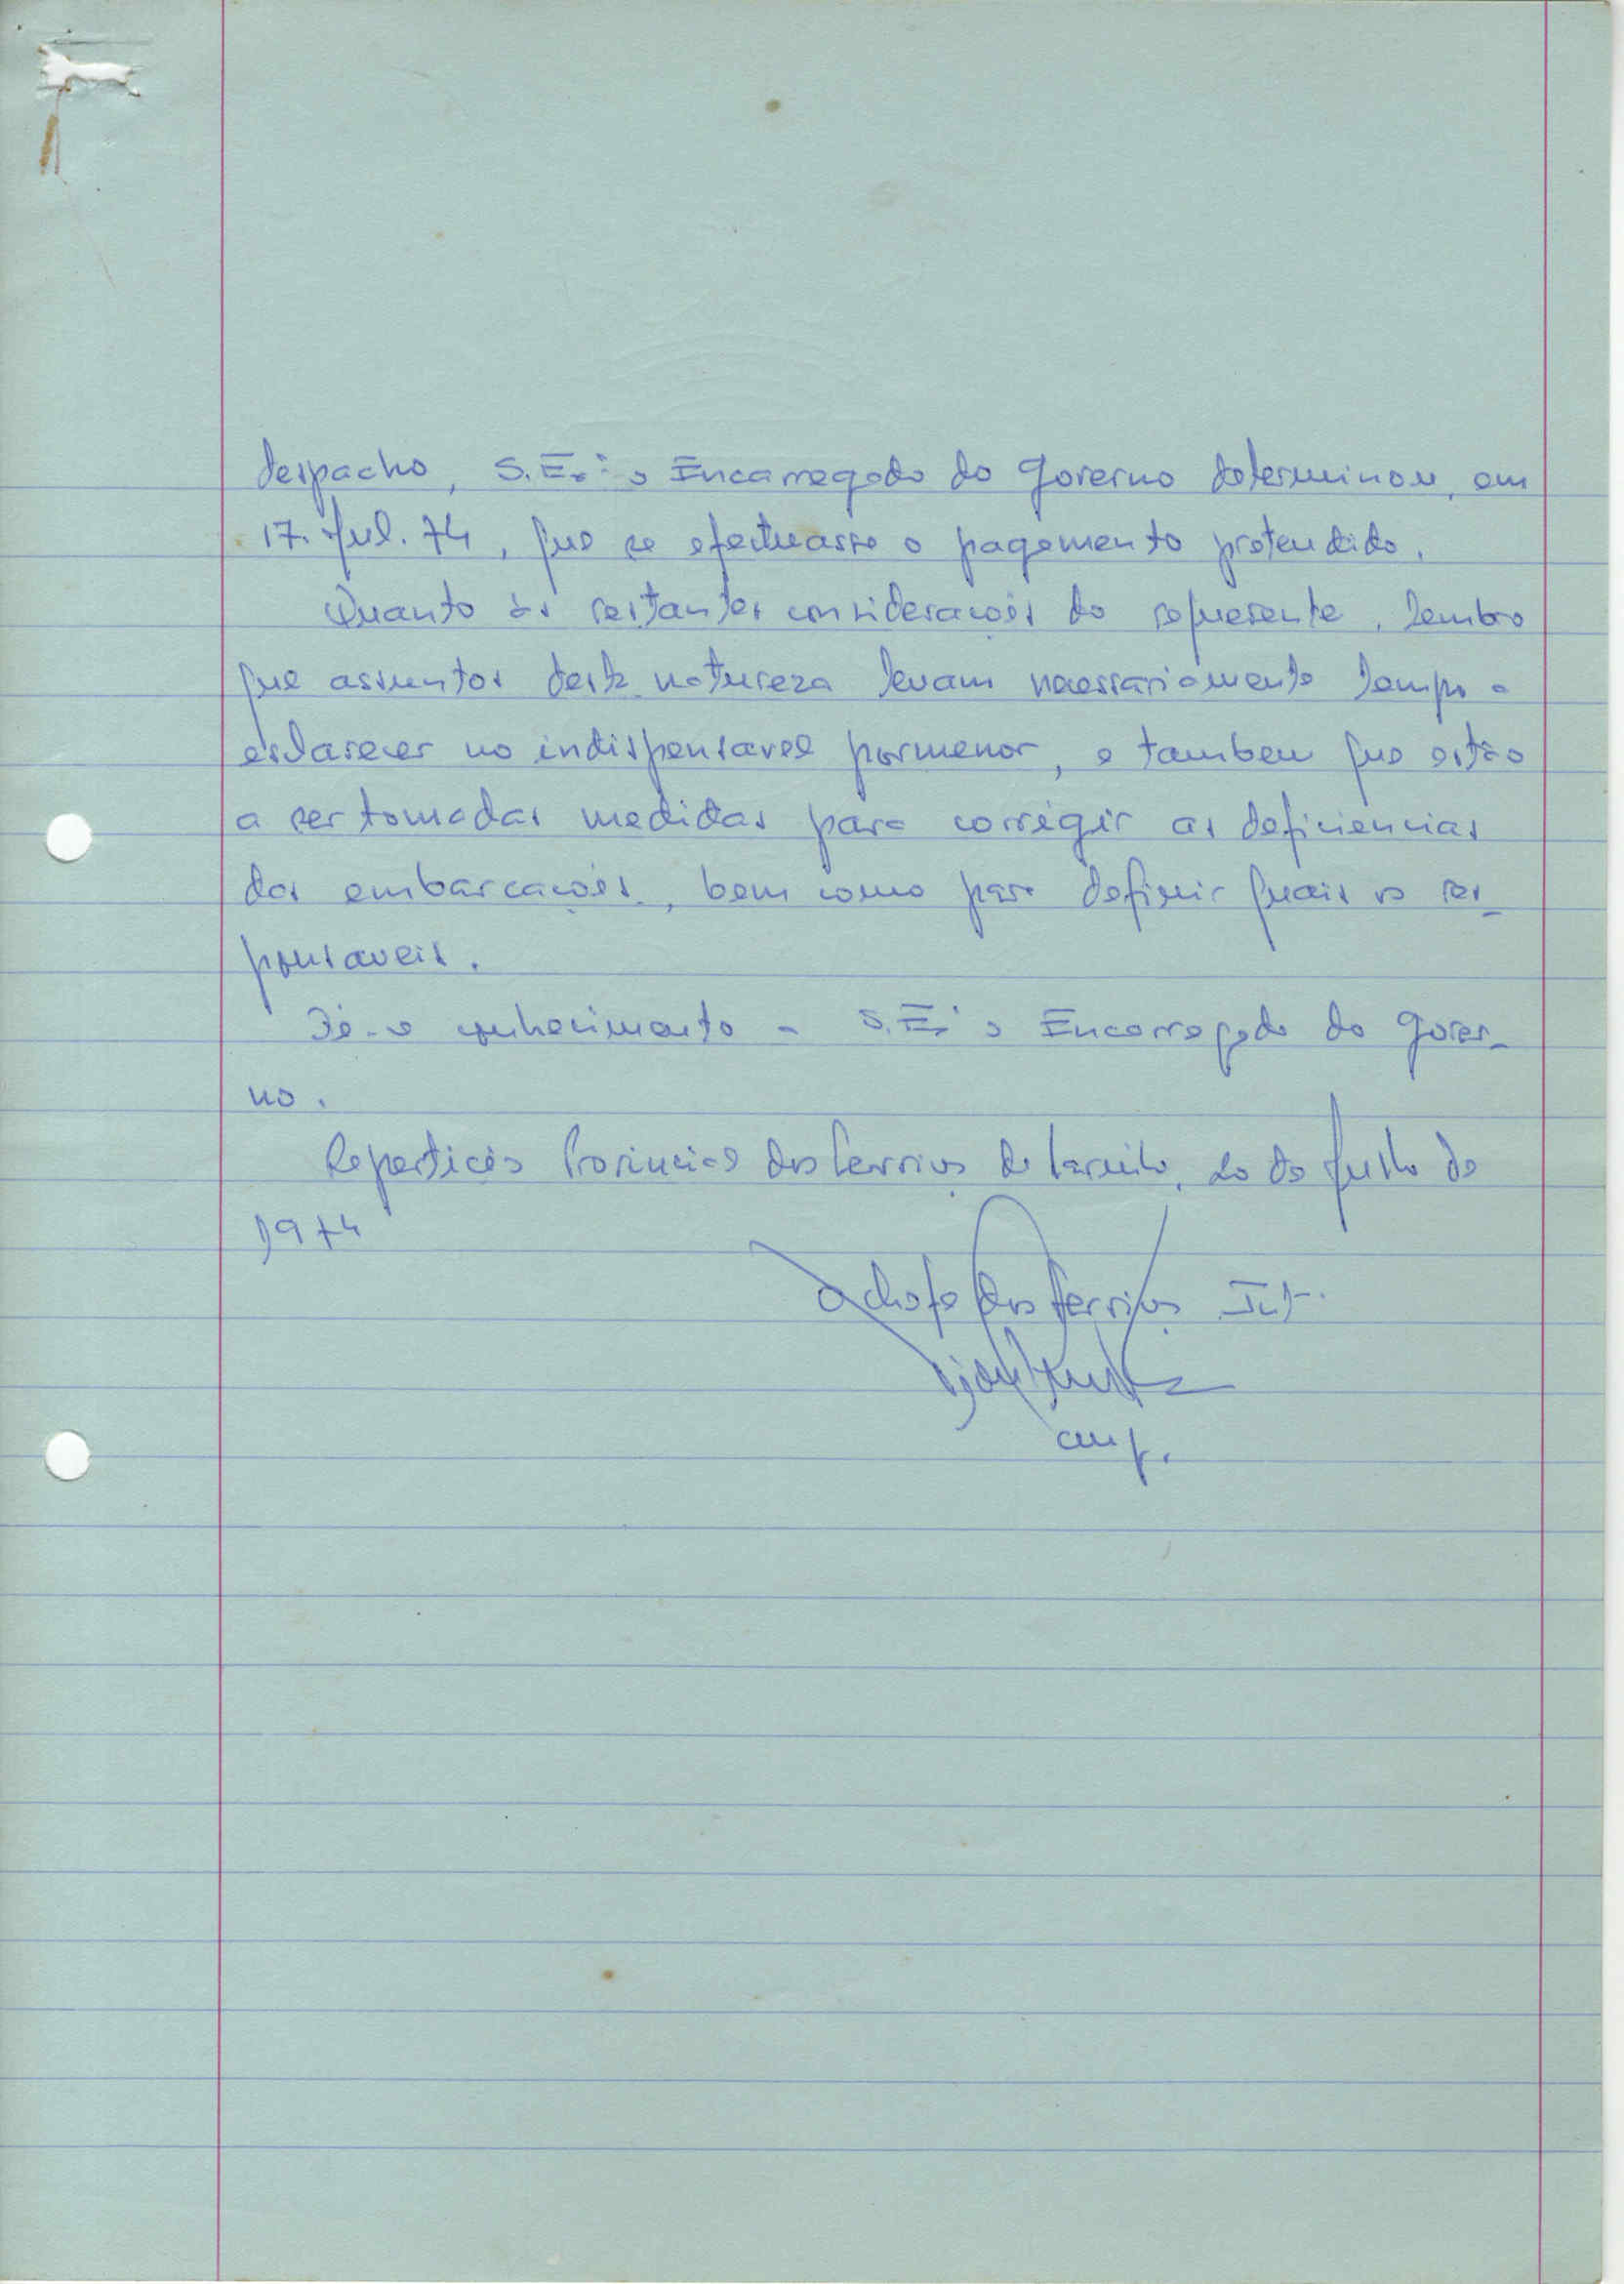 despacho, S. Exª o Encarregado do Governo determinou, em
17. Jul. 74, que se efectuasse o pagamento pretendido.
Quanto às restantes considerações do requerente, lembro
que assuntos desta natureza levam necessariamente tempo a
esclarecer no indispensavel pormenor, e tambem que estão
a ser tomadas medidas para corrigir as deficiencias
das embarcações, bem como para definir quais os res-
ponsaveis.
Dê-se conhecimento a S. Exª o Encarregado do Gover-
no.
Repartição Provincial dos Serviços de Marinha, 20 de Julho de
1974
O chefe dos Serviços Intº.